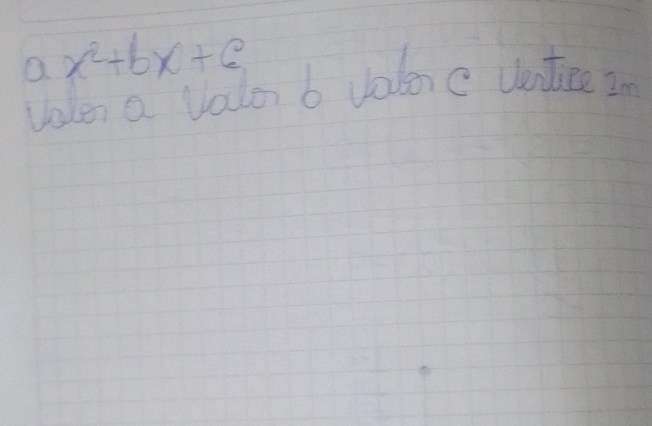 ax²+bx+c
Valor a Valor b Valor c Vertice Im